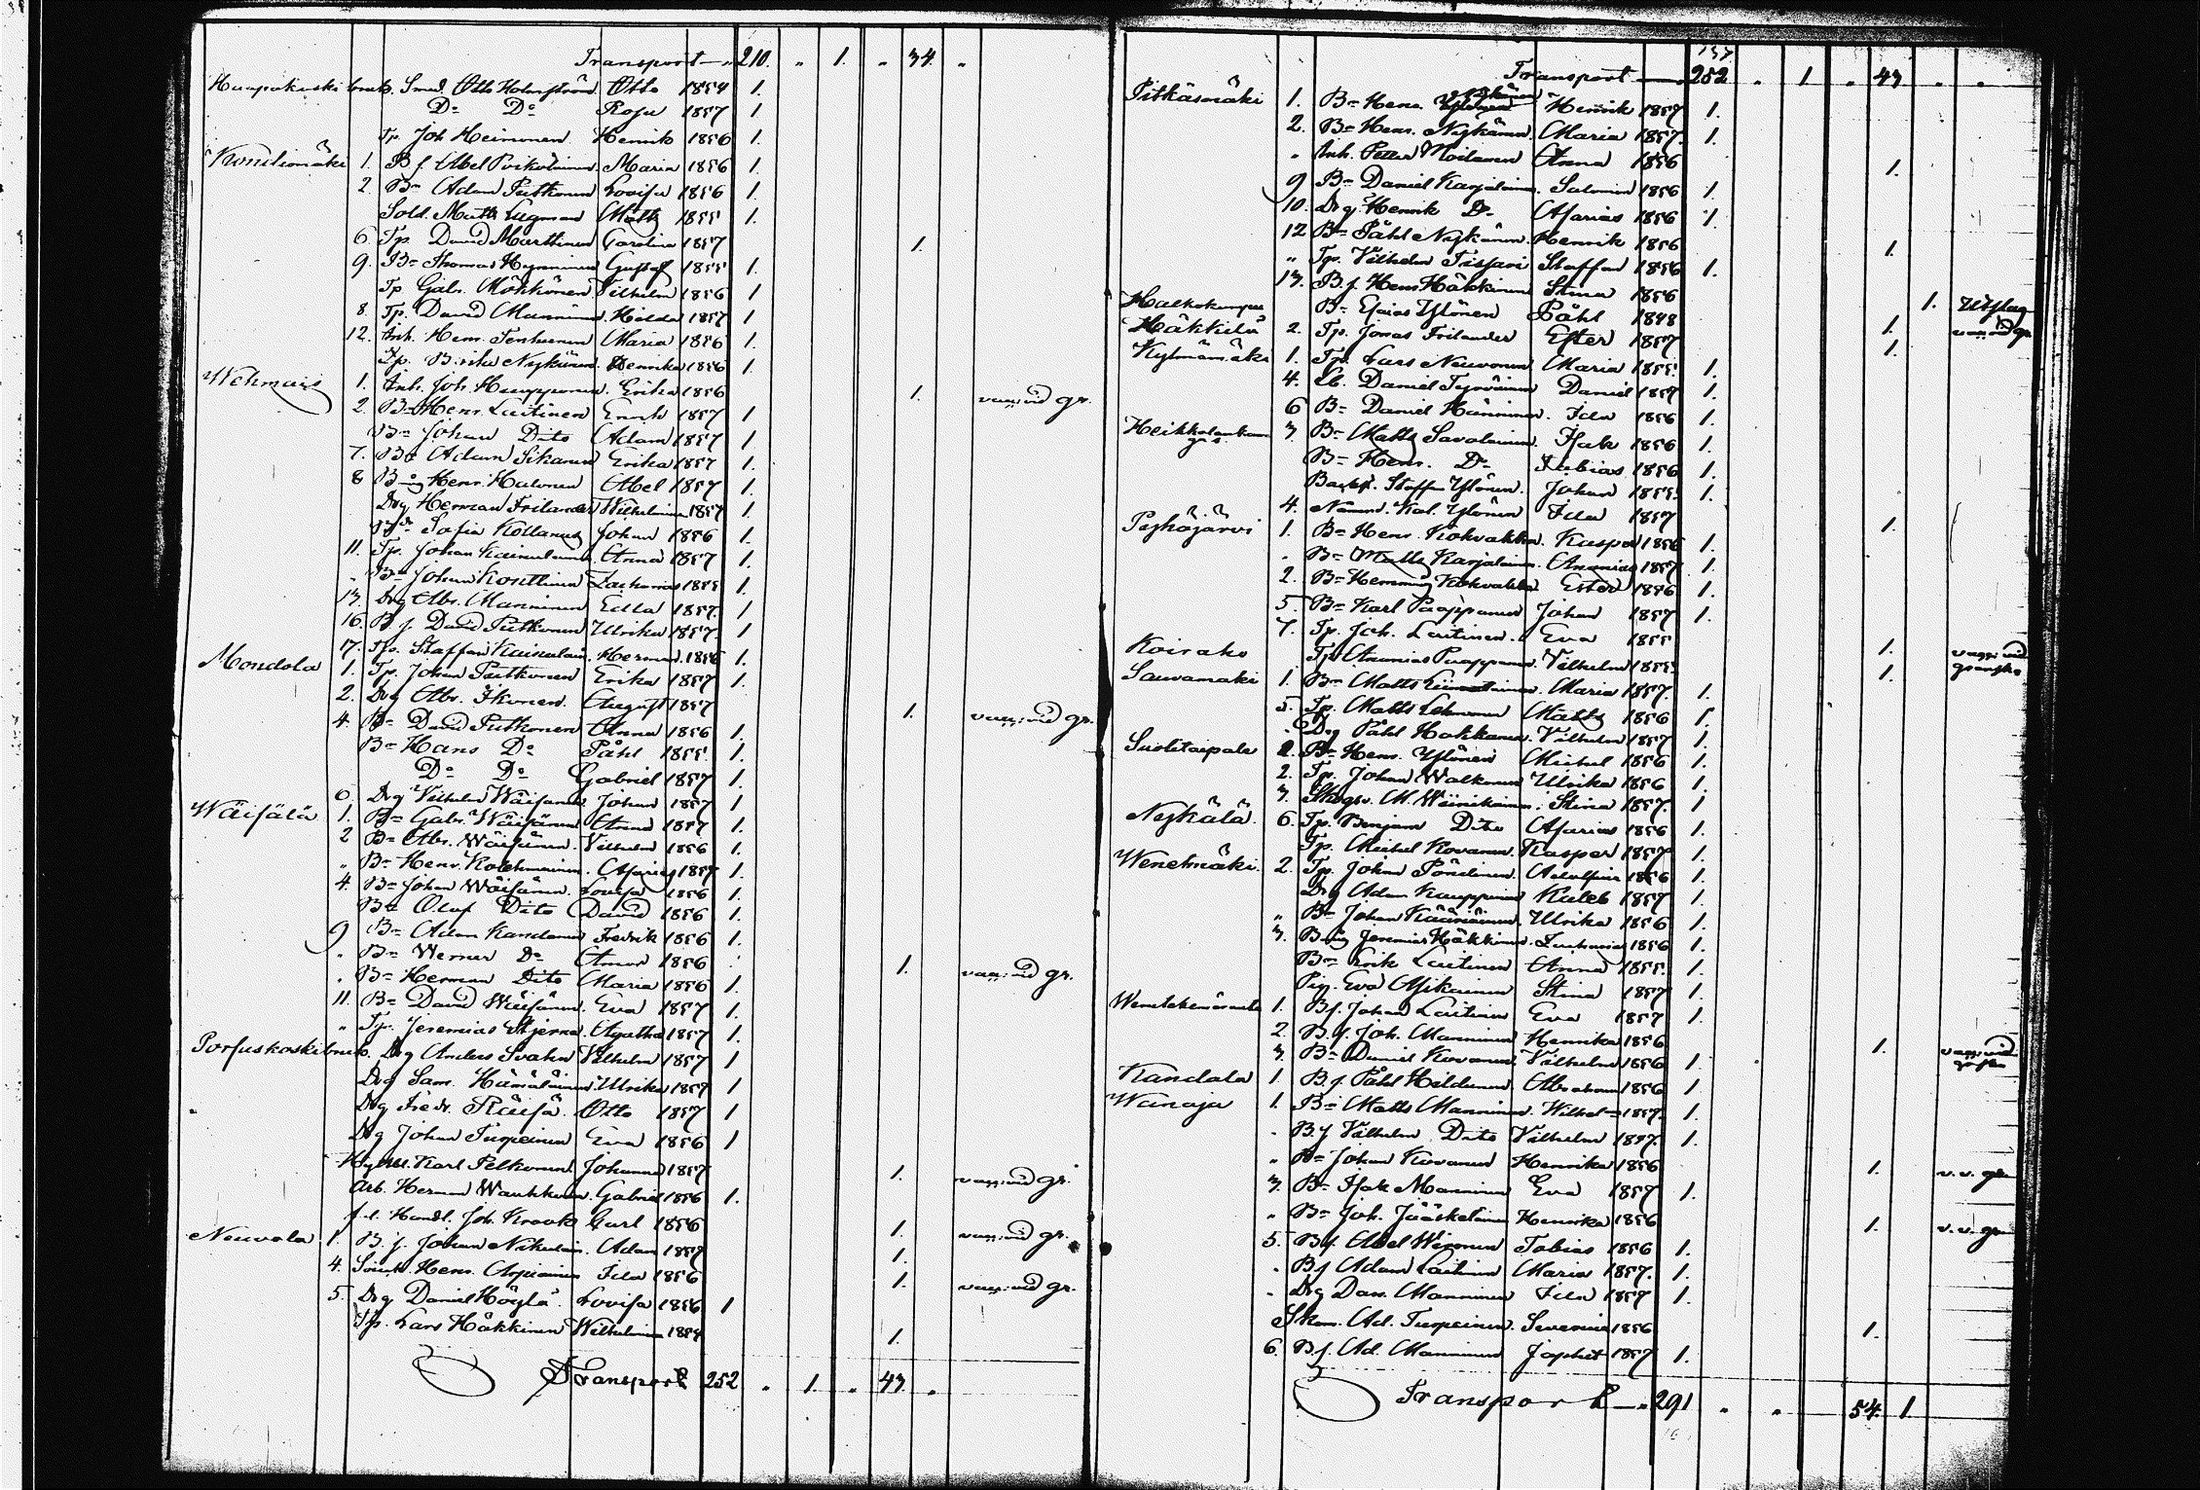 Transport — 210. „ 1. „ 34. „
Haapakoski bruk. Smed. Otto Holmström Otto 1854 1.
Do Do Rosa 1857 1
Tp. Joh Heimonen Henrik 1856 1.
Kondiomäki 1. B. f. Abel Maria 1856 1.
2. Bn Adam Putkonen Lovisa 1856 1.
Sold. Matts Lagman Matts 1855 1.
6. Tp. David Marttinen Carolina 1857 1.
9. Bn Thomas Hynninen Gustaf 1855 1.
Tp Gabr. Mökkönen Vilhelm 1856 1
8. Tp. David Manninen Hilda 1857 1
12. Inh. Henr. Tenhunen Maria 1856 1.
Tp. Nykänen Henrika 1856 1.
Wehmais 1. Inh. Joh. Kauppinen Erika 1856 1.
2. Bn Henr. Laitinen Enok 1857 1
Bn Johan Dito Adam 1857 1
7. Bn Adam Sikanen Erika 1857 1
8 Henr. Halonen Abel 1857 1.
Drg Herman Frilander Wilhelmina 1857 1
Sofia Kollanus Johan 1856 1
11. Tp. Johan Kainulainen Anna 1857 1.
„ Bn Johan Konttinen Zacharias 1855 1
13. Drg Abr. Manninen Edla 1857. 1
16. B f. David Putkonen Ulrika 1857. 1
17. Tp. Staffan Kainulain. Herman. 1856 1.
Mondola 1. Tp. Johan Partkonen Erika 1857 1.
2. Drg Abr. Ikonen. August 1857 1.
4. Bn David Putkonen Anna 1856 1.
Bn Hans Do Påhl 1855. 1.
Do Do Gabriel 1857 1.
6. Drg Vilhelm Wäisänen Johan 1857 1
Wäisälä 1. Bn Gabr. Wäisänen Anna 1857 1.
2 Bn Abr. Wäisänen Vilhelm 1856 1.
„ Bn Henr. Kolehmainen. Asarias 1857 1.
4. Bn Johan Wäisänen Lovisa 1856 1.
Bn Olof Dito David 1856 1.
9 Bn Adam Kandanen Fredrik 1856 1.
„ Bn Werner Do 1856 1.
„ Bn Herman Dito Maria 1856 1.
11. Bn David Wäisänen Eva 1857 1.
„ Tp. Jeremias Stjerna Agatha 1857 1.
Porsaskoski bruk. Drg Anders Svahn Vilhelm 1857 1
Drg Sam. Hämäläinen Ulrika 1857 1
Drg Fredr. Räisä Otto 1857 1
Drg Johan Turpeinen Eva 1856 1
Karl Pelkonen Johanna 1857 1.
Arb. Herman Wauhkonen Gabriel 1856 1.
f. d. Handl. Joh. Krook Carl 1856 1.
Neuvola 1. B. f. Johan Nikulain. Adam 1857 1.
4. Henr. Arpiainen Ida 1856 1.
5. Drg Daniel Höylä Lovisa 1856 1
Tp. Lars Häkkinen Wilhelmina 1854 1.
Transport 252 „ 1. „ 43 „
137
Transport — 252 „ 1 „ 43 „ „
Pitkäsmäki 1. Bn Henr. Nykänen Henrik 1857 1.
2. Bn Henr. Nykänen Maria 1857. 1.
„ Inh. Petter Moilanen Anna 1856 1.
9 Bn Daniel Karjalainen Salomon 1856 1
10. Drg. Henrik Do Asarias 1856 1
12 Bn Påhl Nykänen Henrik 1856 1.
„ Tp. Vilhelm Staffan 1856 1.
13. B. f. Henr Häkkinen Stina 1856
Halkokumpu Bn Esaias Ylönen Påhl 1848 1. Utslag
Häkkilä 2. Tp. Jonas Frilander Ester 1857 1.
Kylmämäki 1. Tp. Lars Neuvonen Maria 1855. 1.
4. Daniel Tyrväinen Daniel 1857 1.
6 Bn Daniel Hänninen Ida 1856 1.
3. Bn Matts Savolainen Isak 1856 1.
Bn Henr. Do Tobias 1856 1.
Staffan Ylönen. Johan 1855. 1.
4. Nämnd. Kal. Ylönen Ida 1857 1.
Pyhäjärvi 1. Bn Henr. Kokvakka. Kasper 1856 1.
„ Bn Matts Karjalainen Ananias 1857 1.
2. Bn Henning Kokvakka Ester 1856 1.
5. Bn Karl Paappanen Johan 1857 1.
7. Tp. Joh. Laitinen. Eva 1855 1.
Koirako Tp Ananias Paappanen. Vilhelm 1855 1.
Sauvamaki 1. Bn Matts Maria 1857. 1.
5. Tp. Matts Lehmonen Matts 1856 1.
Drg Påhl Hokkanen. Vilhelm 1857 1.
Suolitaipale 2. Bn Henr. Ylönen Michel 1856 1.
2. Tp. Johan Walkonen Ulrika 1856 1.
3. Skogsv. M. Wäinikainen. Stina 1857. 1
Nykälä. 6. Tp. Benjam Dito Asarias 1856 1.
Tp. Michel Kovanen. Kasper 1857 1.
Wenetmäki 2. Tp. Johan Pöndinen. 1856 1.
Drg Adam Kauppinen Kaleb 1857 1.
„ Bn Johan Kääriäinen. Ulrika 1856 1.
3. Jeremias Häkkinen. Zacharias 1856 1.
Bn Erik Laitinen Anna 1855. 1.
Pig. Eva Asikainen Stina 1857 1.
1. B f. Johan Laitinen Eva 1857 1.
2. B. f. Joh. Manninen Henrika 1856 1.
3. Bn Daniel Kovanen Vilhelm 1856 1.
Kandala 1. B. f. Påhl Hildunen Abraham 1856 1.
Wanaja 1. Bn Matts Manninen. Wilhel= 1857. 1.
„ B f Vilhelm Dito Vilhelm 1857. 1.
„ Bn Johan Kovanen Henrika 1856 1. v. v. gr
3. Bn Isak Manninen Eva 1857 1.
„ Bn Joh. Jääskeläinen Henrika 1856 1. v. v. gr
5. B f. Abel Wironen Tobias 1856 1.
„ B f Adam Laitinen Maria 1857. 1.
„ Drg Dan. Manninen Ida 1857 1.
Skom. Ad. Turpeinen. Severina 1856 1.
6. B f. Ad. Manninen Japhet 1857 1.
Transport — 291 „ „ 1 54 1